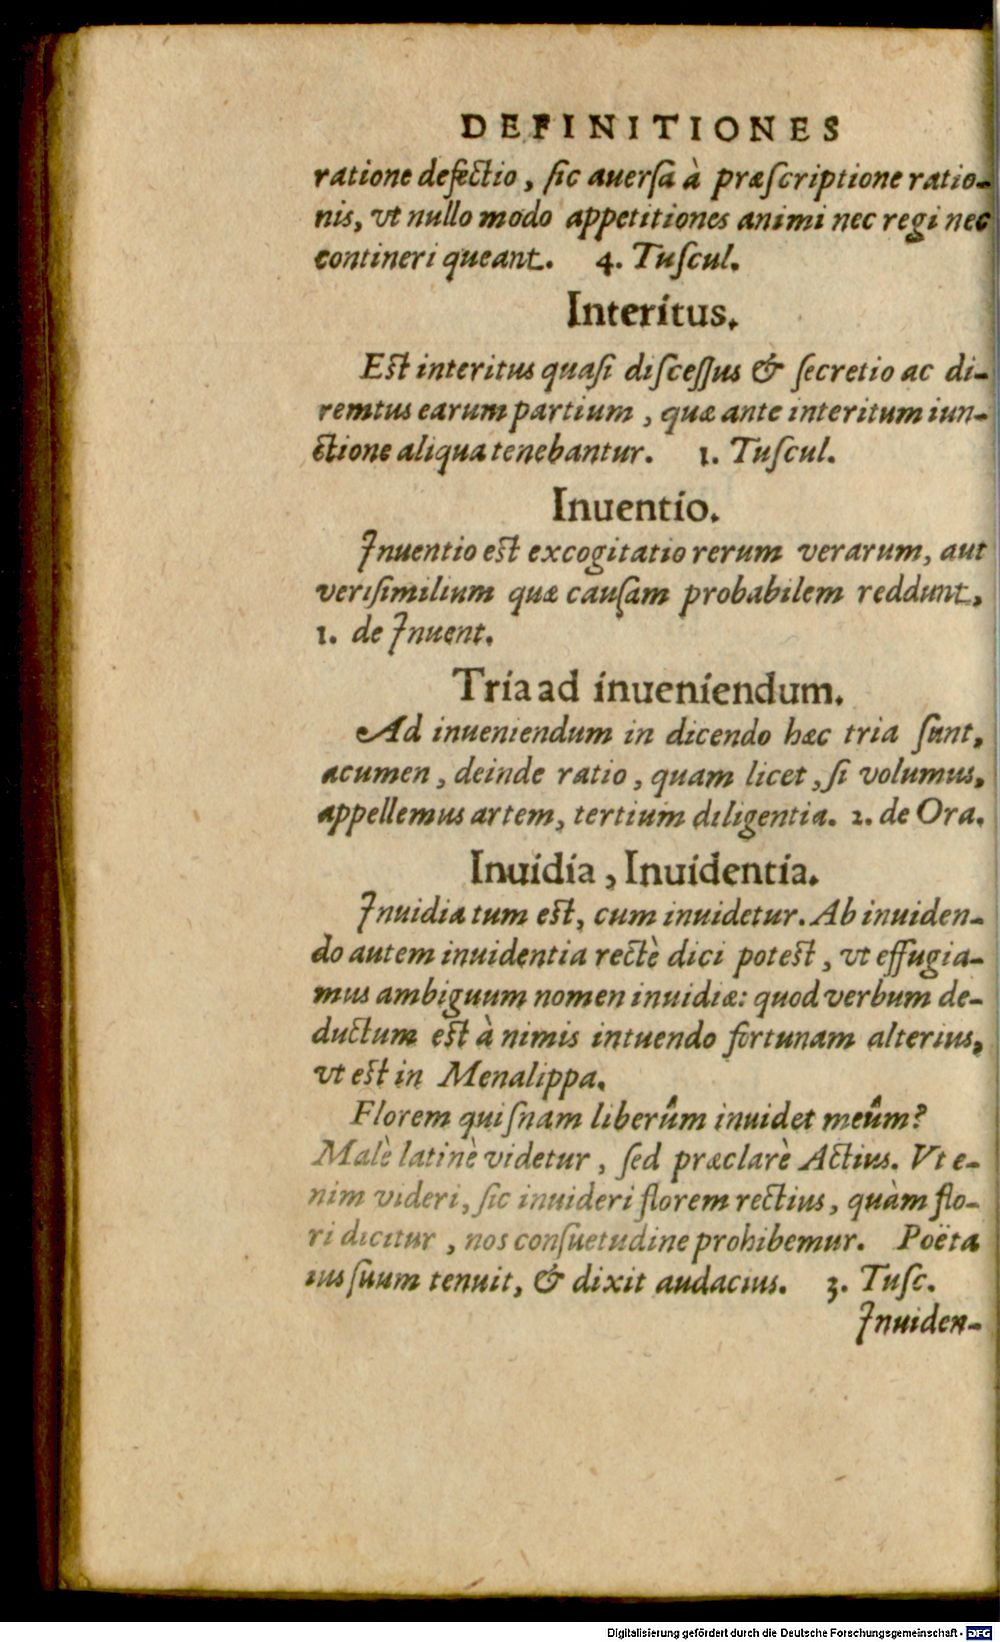 DEFINITIONES
ratione defectio, ſic auerſa à præſcriptione ratio-
nis, vt nullo modo appetitiones animi nec regi nec
contineri queant. 4. Tuſcul.
Interitus.
Eſt interitus quaſi diſceſſus & ſecretio ac di-
remtus earum partium, quæ ante interitum iun-
ctione aliqua tenebantur. 1. Tuſcul.
Inuentio.
Inuentio eſt excogitatio rerum verarum, aut
veriſimilium quæ cauſam probabilem reddunt,
1. de Inuent.
Tria ad inueniendum.
Ad inueniendum in dicendo hæc tria ſunt,
acumen, deinde ratio, quam licet, ſi volumus,
appellemus artem, tertium diligentia. 2. de Ora.
Inuidia, Inuidentia.
Inuidia tum eſt, cum inuidetur. Ab inuiden-
do autem inuidentia rectè dici poteſt, vt effugia-
mus ambiguum nomen inuidiæ: quod verbum de-
ductum eſt à nimis intuendo fortunam alterius,
vt eſt in Menalippa.
Florem quiſnam liberûm inuidet meûm?
Malè latinè videtur, ſed præclarè Actius. Vt e-
nim videri, ſic inuideri florem rectius, quàm flo-
ri dicitur, nos conſuetudine prohibemur. Poëta
ius ſuum tenuit, & dixit audacius. 3. Tuſc.
Inuiden-
Digitalisierung gefördert durch die Deutsche Forschungsgemeinschaft - DFG